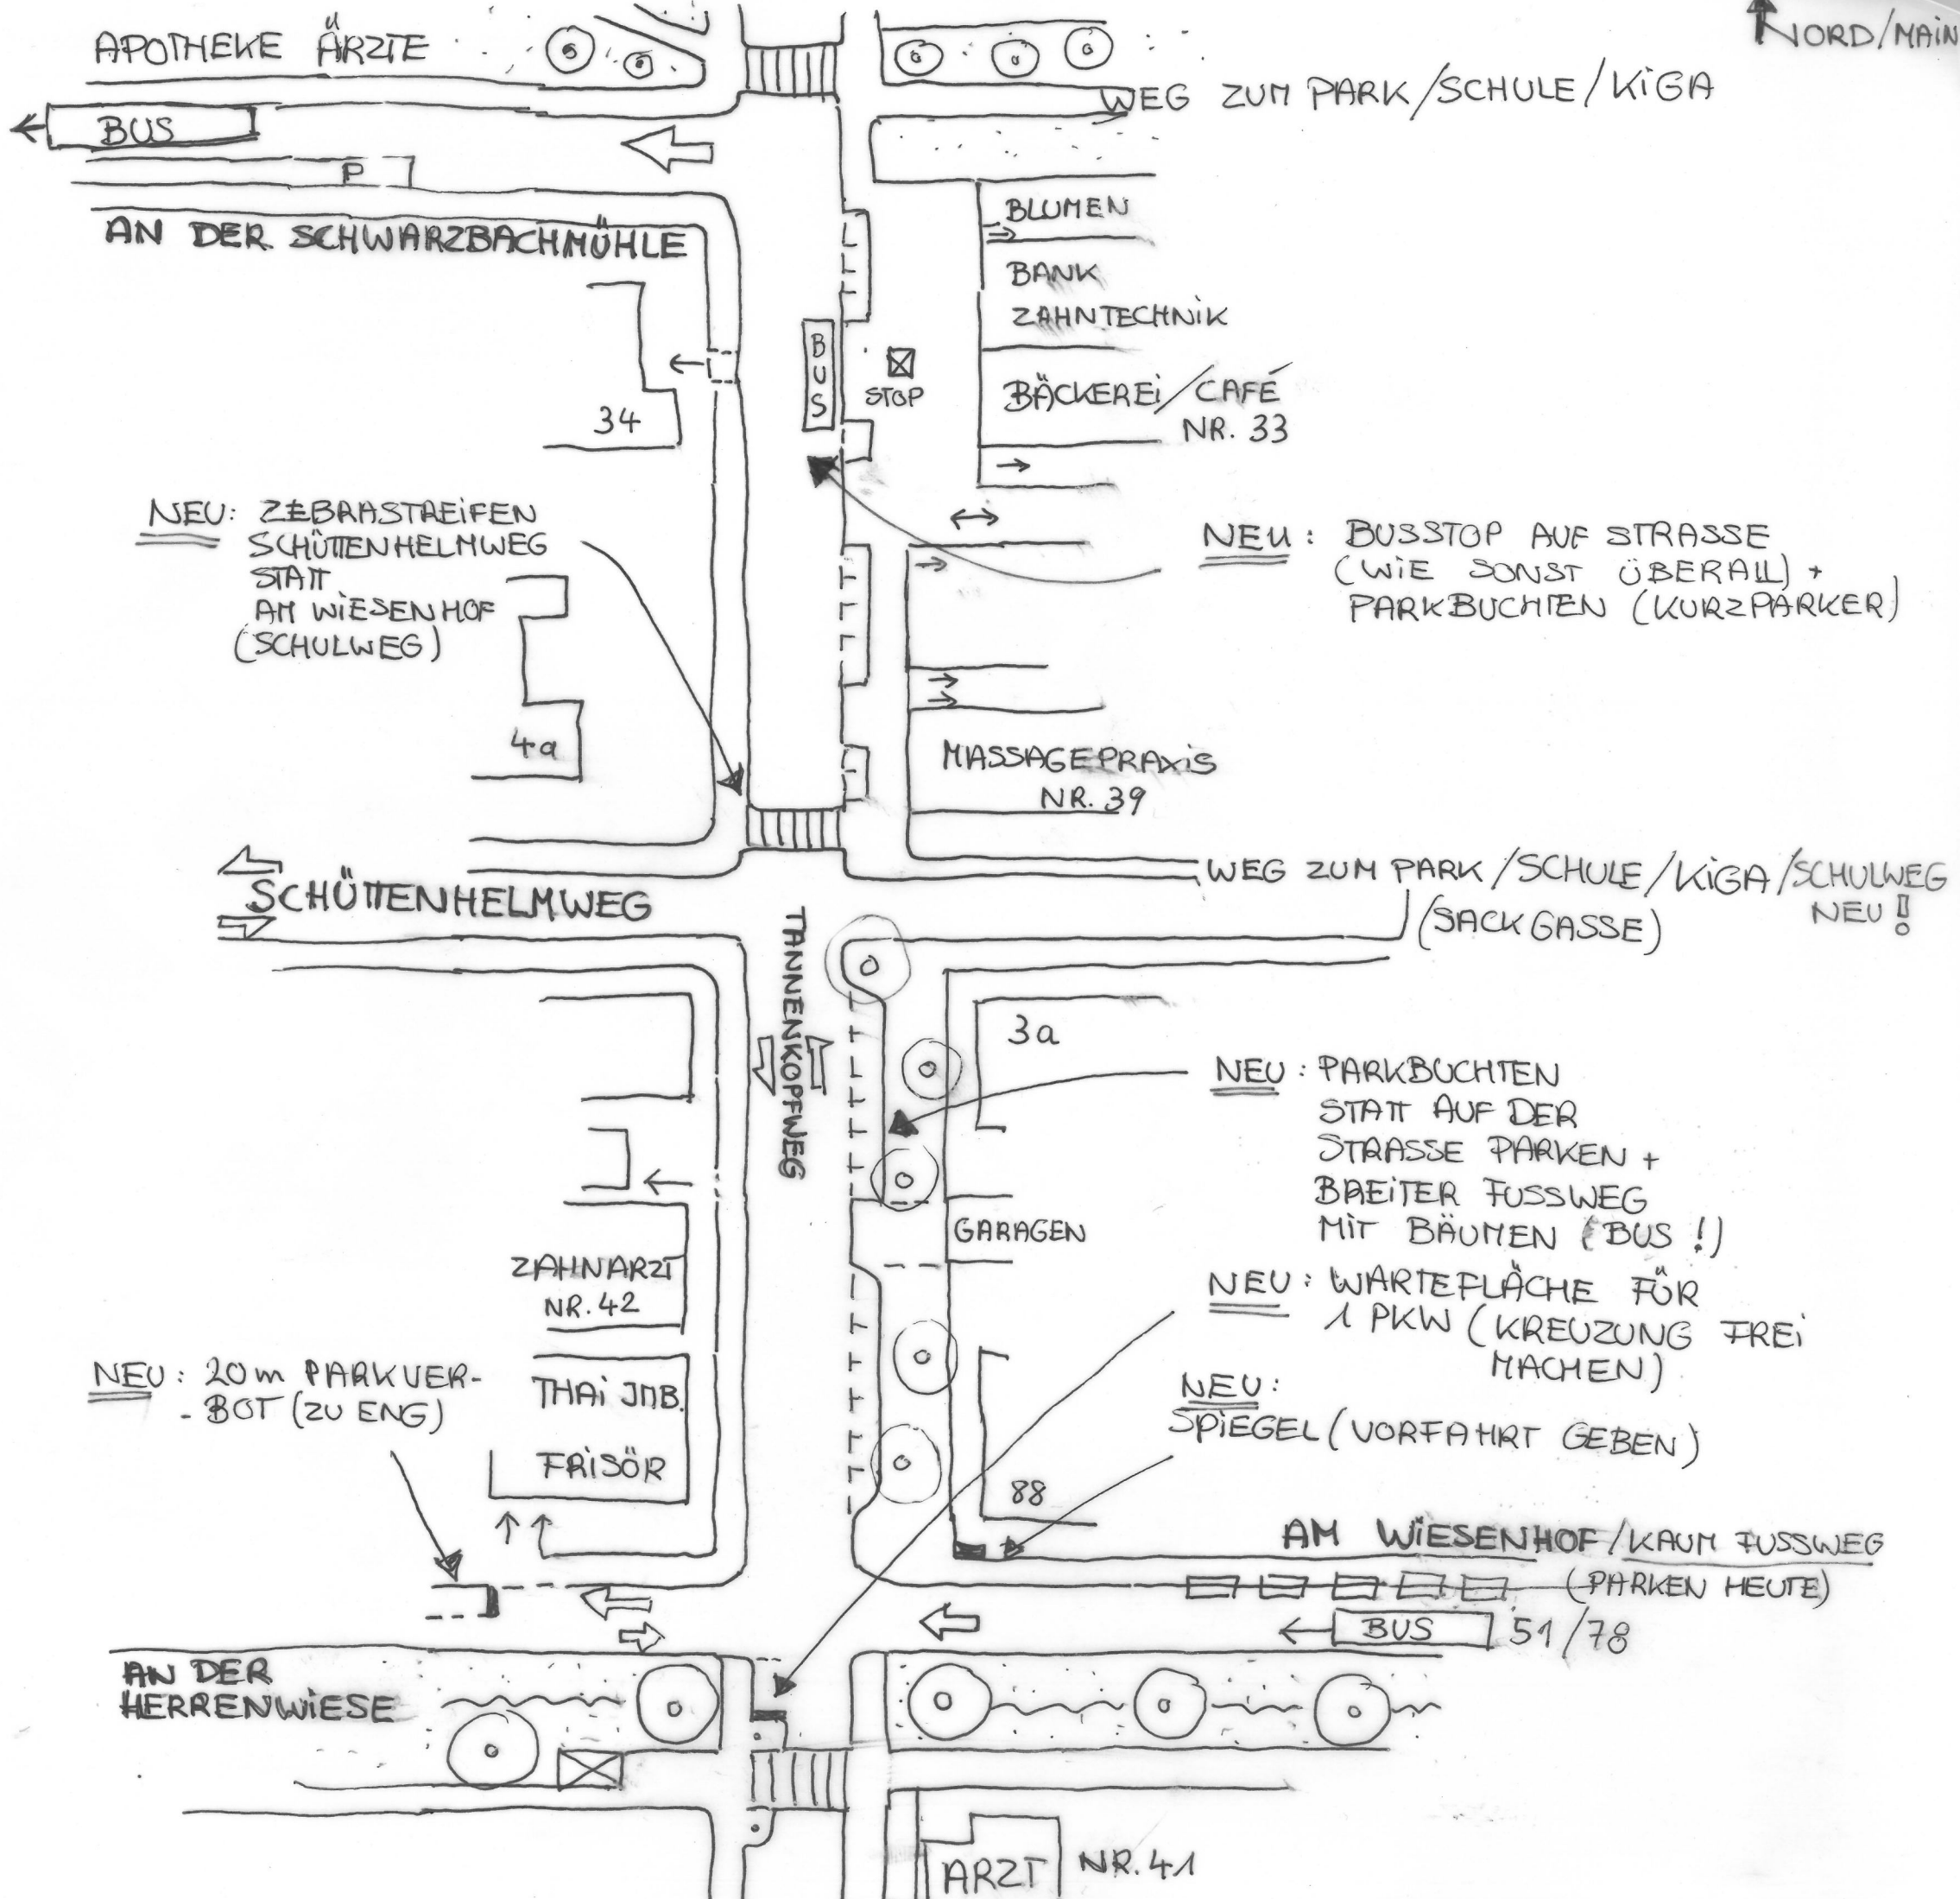 NORD/MAIN
APOTHEKE ÄRZTE
WEG ZUM PARK/SCHULE/KiGA
BUS
P
AN DER SCHWARZBACHMÜHLE
BLUMEN
BANK
ZAHNTECHNiK
BUS
STOP
BÄCKEREi/CAFÉ
NR. 33
34
NEU: ZEBRASTREiFEN
SCHÜTTENHELMWEG
STATT
AM WiESENHOF
(SCHULWEG)
NEU: BUSSTOP AUF STRASSE
(WiE SONST ÜBERALL) +
PARKBUCHTEN (KURZPARKER)
4a
MASSAGEPRAXiS
NR. 39
WEG ZUM PARK/SCHULE/KiGA/SCHULWEG
NEU!
(SACKGASSE)
SCHÜTTENHELMWEG
TANNENKOPFWEG
3a
NEU: PARKBUCHTEN
STATT AUF DER
STRASSE PARKEN +
BREiTER FUSSWEG
MiT BÄUMEN (BUS!)
GARAGEN
ZAHNARZT
NR. 42
NEU: WARTEFLÄCHE FÜR
1 PKW (KREUZUNG FREi
MACHEN)
NEU: 20m PARKVER-
- BOT (ZU ENG)
THAi JMB.
FRiSÖR
NEU:
SPiEGEL (VORFAHRT GEBEN)
88
AM WiESENHOF/KAUM FUSSWEG
(PARKEN HEUTE)
BUS 51/78
AN DER
HERRENWiESE
ARZT NR. 41